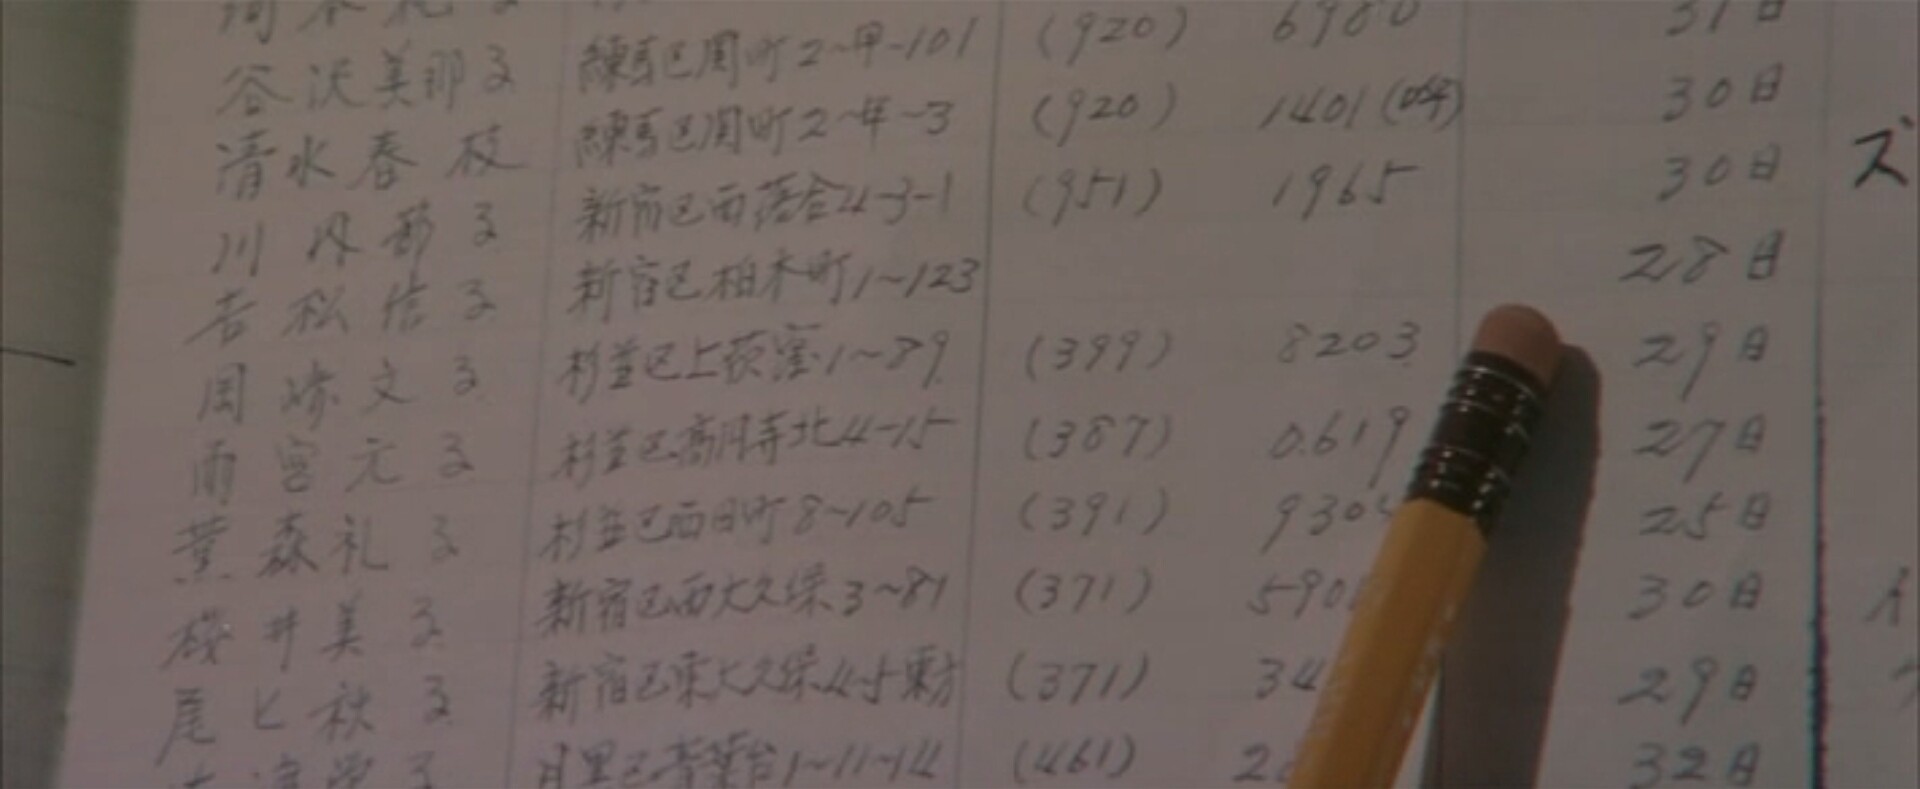 谷沢美那子 練馬区関町2~甲-101 (920) 6980 31日
清水春枝 練馬区関町2~年~3 (920) 1401(呼) 30日
川内郁子 新宿区西落合4-3-1 (951) 1965 30日
吉松信子 新宿区柏木町1~123 28日
岡崎文子 杉並区上荻窪1~89 (399) 8203 29日
雨宮元子 杉並区高円寺北4-15 (387) 0619 27日
葉森礼子 杉並区西田町8~105 (391) 930 25日
磯井美子 新宿区西大久保3~81 (371) 590 30日
尾上秋子 新宿区東大久保4-5東方 (371) 34 29日
目黒区青葉台1~11~14 (461) 2 32日
ズ